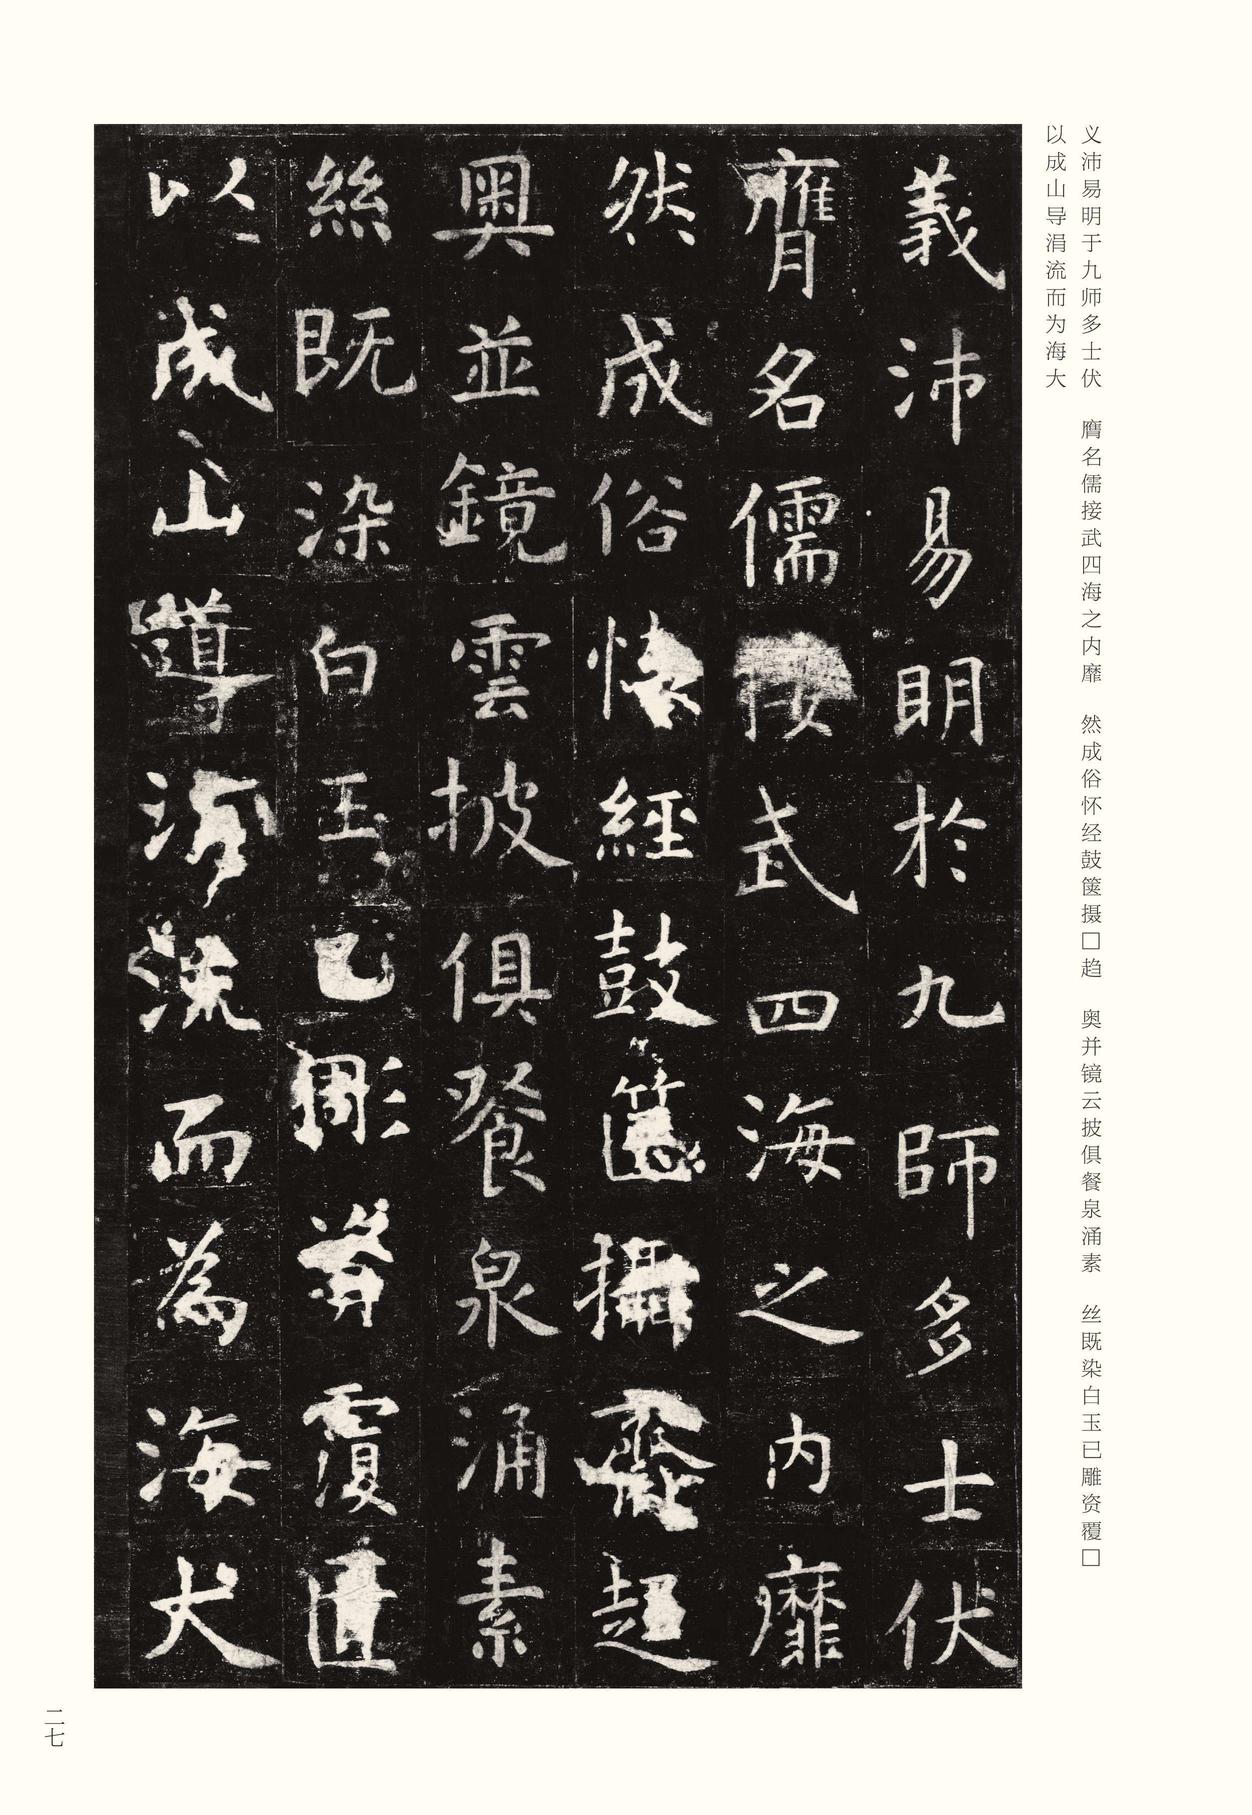 义沛易明于九师多士伏　膺名儒接武四海之内靡　然成俗怀经鼓箧摄□趋　奥并镜云披俱餐泉涌素　丝既染白玉已雕资覆□
以成山导涓流而为海大
義沛易明於九師多士伏
膺名儒接武四海之内靡
然成俗懷經鼓篋攝齋趍
奥並鏡雲披俱餐泉涌素
絲既染白玉已彫資覆匱
以成山導涓流而為海大
二七